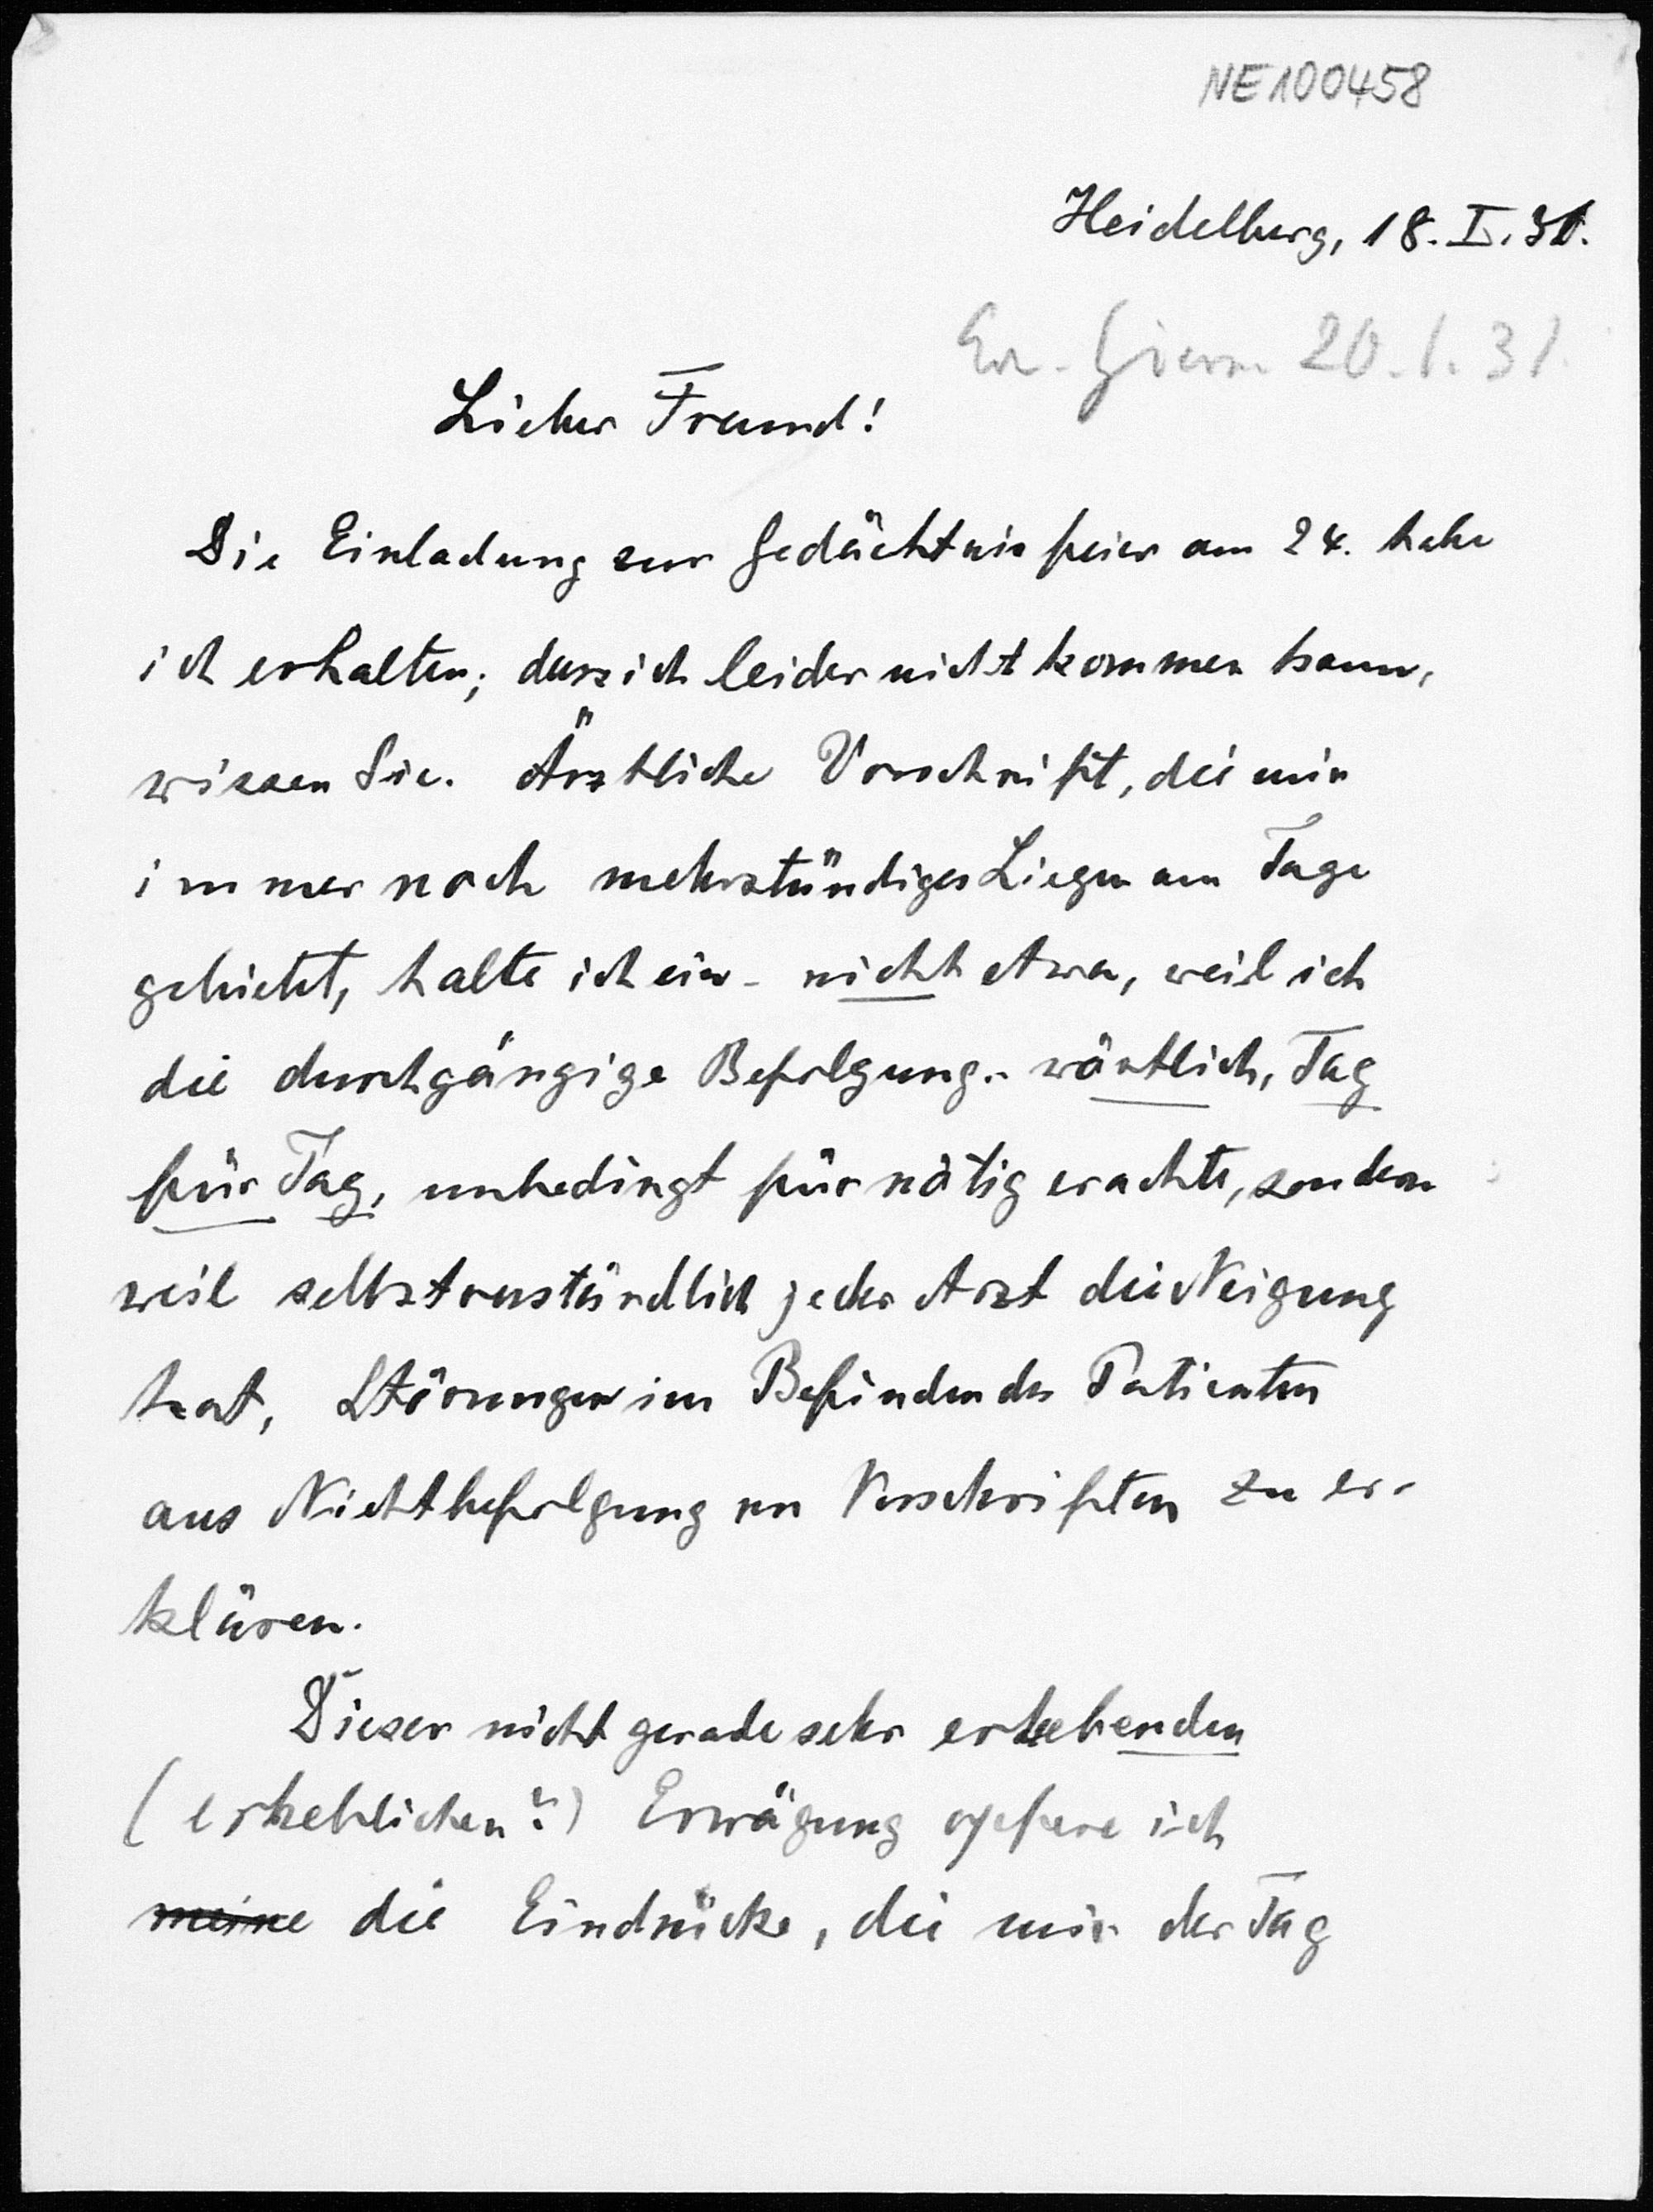 NE100458
Heidelberg, 18. I. 31.
20.1.31.
Lieber Freund!
Die Einladung zur Gedächtnisfeier am 24. habe
ich erhalten; dass ich leider nicht kommen kann,
wissen Sie. Ärztliche Vorschrift, die mir
immer noch mehrstündiges Liegen am Tage
gebietet, halte ich ein - nicht etwa, weil ich
die durchgängige Befolgung - wörtlich, Tag
für Tag, unbedingt für nötig erachte, sondern
weil selbstverständlich jeder Arzt die Neigung
hat, Störungen im Befinden des Patienten
aus Nichtbefolgung von Vorschriften zu er-
klären.
Dieser nicht gerade sehr erhebenden
(erheblichen?) Erwägung opfere ich
meine die Eindrücke, die mir der Tag